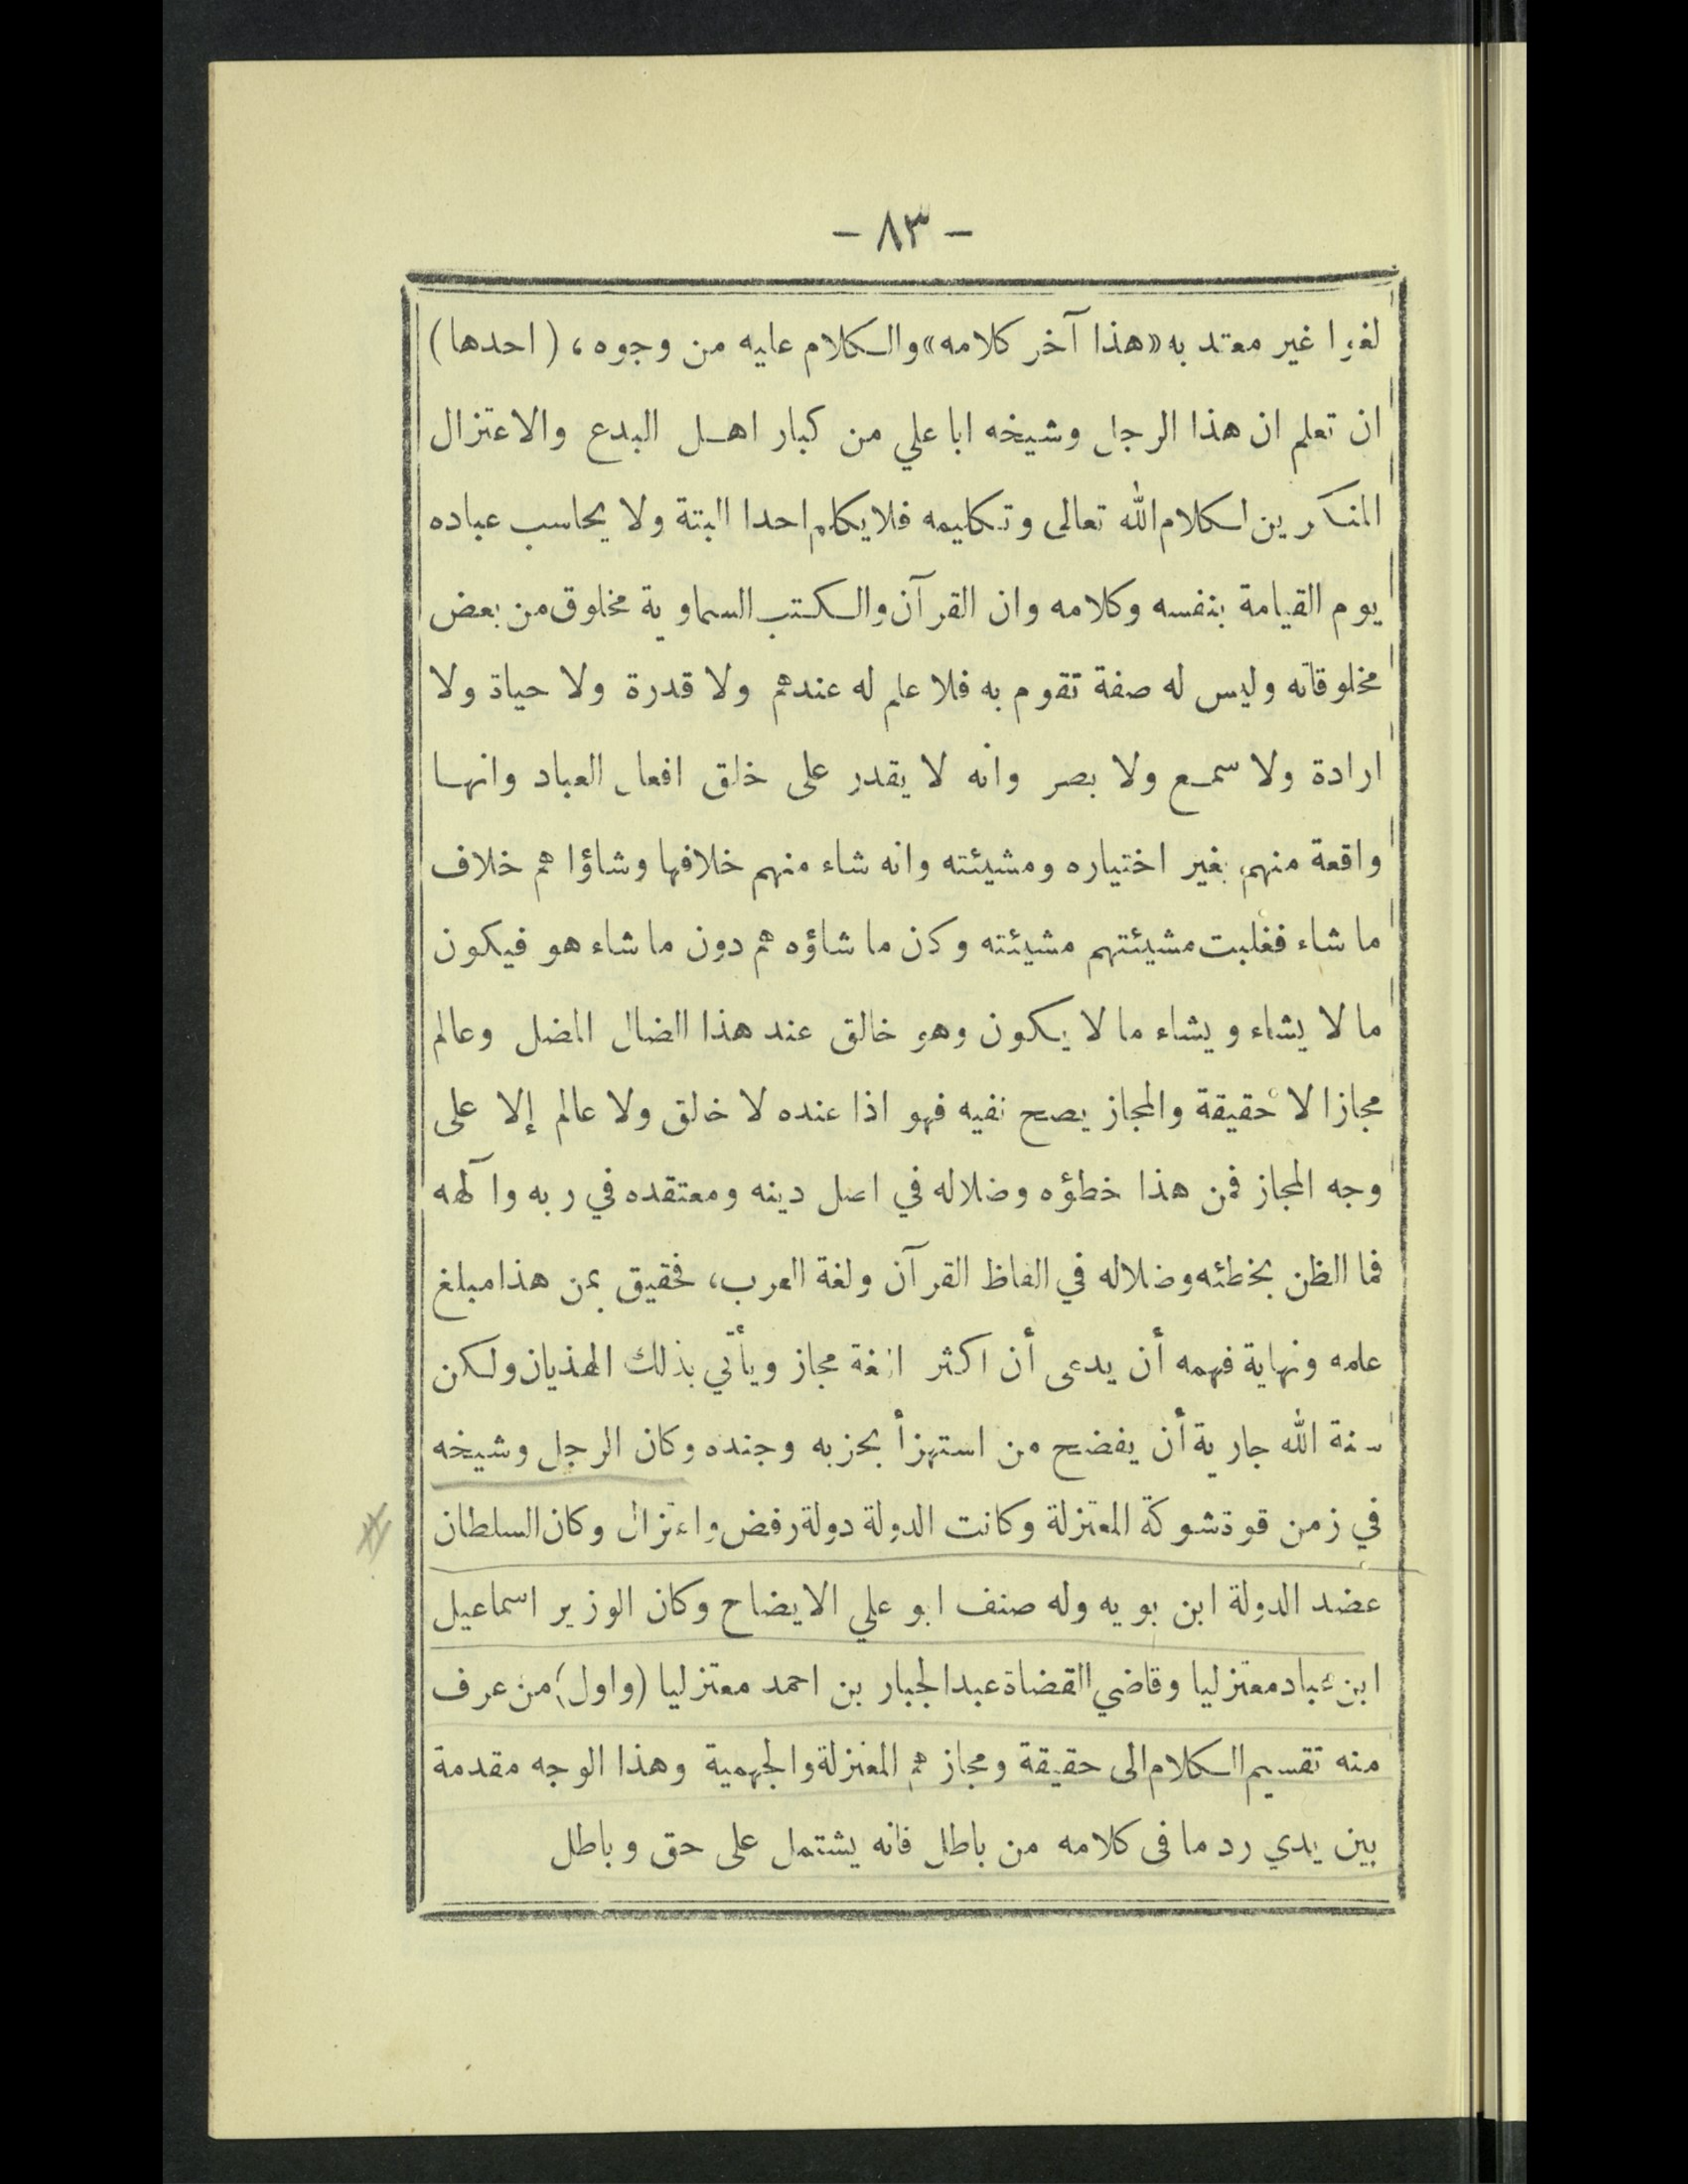 - ٨٣ -
لغوا غير معتد به «هذا آخر كلامه» والكلام عليه من وجوه، (احدها)
ان تعلم ان هذا الرجل وشيخه ابا علي من كبار اهل البدع والاعتزال
المنكرين لكلام الله تعالى وتكليمه فلا يكلم احدا البتة ولا يحاسب عباده
يوم القيامة بنفسه وكلامه وان القرآن والكتب السماوية مخلوق من بعض
مخلوقاته وليس له صفة تقوم به فلا علم له عندهم ولا قدرة ولا حياة ولا
ارادة ولا سمع ولا بصر وانه لا يقدر على خلق افعال العباد وانها
واقعة منهم بغير اختياره ومشيئته وانه شاء منهم خلافها وشاؤا هم خلاف
ما شاء فغلبت مشيئتهم مشيئته وكان ما شاؤه هم دون ما شاء هو فيكون
ما لا يشاء ويشاء ما لا يكون وهو خالق عند هذا الضال المضل وعالم
مجازا لا حقيقة والمجاز يصح نفيه فهو اذا عنده لا خالق ولا عالم إلا على
وجه المجاز فمن هذا خطؤه وضلاله في اصل دينه ومعتقده في ربه وآلهه
فما الظن بخطئه وضلاله في الفاظ القرآن ولغة العرب، فحقيق بمن هذا مبلغ
علمه ونهاية فهمه أن يدعى أن اكثر اللغة مجاز ويأتي بذلك الهذيان ولكن
سنة الله جارية أن يفضح من استهزأ بحزبه وجنده وكان الرجل وشيخه
في زمن قوة شوكة المعتزلة وكانت الدولة دولة رفض واعتزال وكان السلطان
عضد الدولة ابن بويه وله صنف ابو علي الايضاح وكان الوزير اسماعيل
ابن عباد معتزليا وقاضي القضاة عبد الجبار بن احمد معتزليا (واول) من عرف
منه تقسيم الكلام الى حقيقة ومجاز هم المعتزلة والجهمية وهذا الوجه مقدمة
بين يدي رد ما فى كلامه من باطل فانه يشتمل على حق وباطل